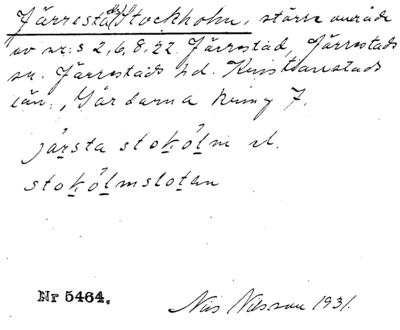 Järrestads Stockholm, större område
av nr:s 2, 6, 8, 22 Järrestad, Järrestads
sn. Järrestads hd. Kristianstads
län., Gårdarna kring 7.
järsta stokólm el.
stokólmslotan
Nr 5464.
Nils Nilsson 1931.